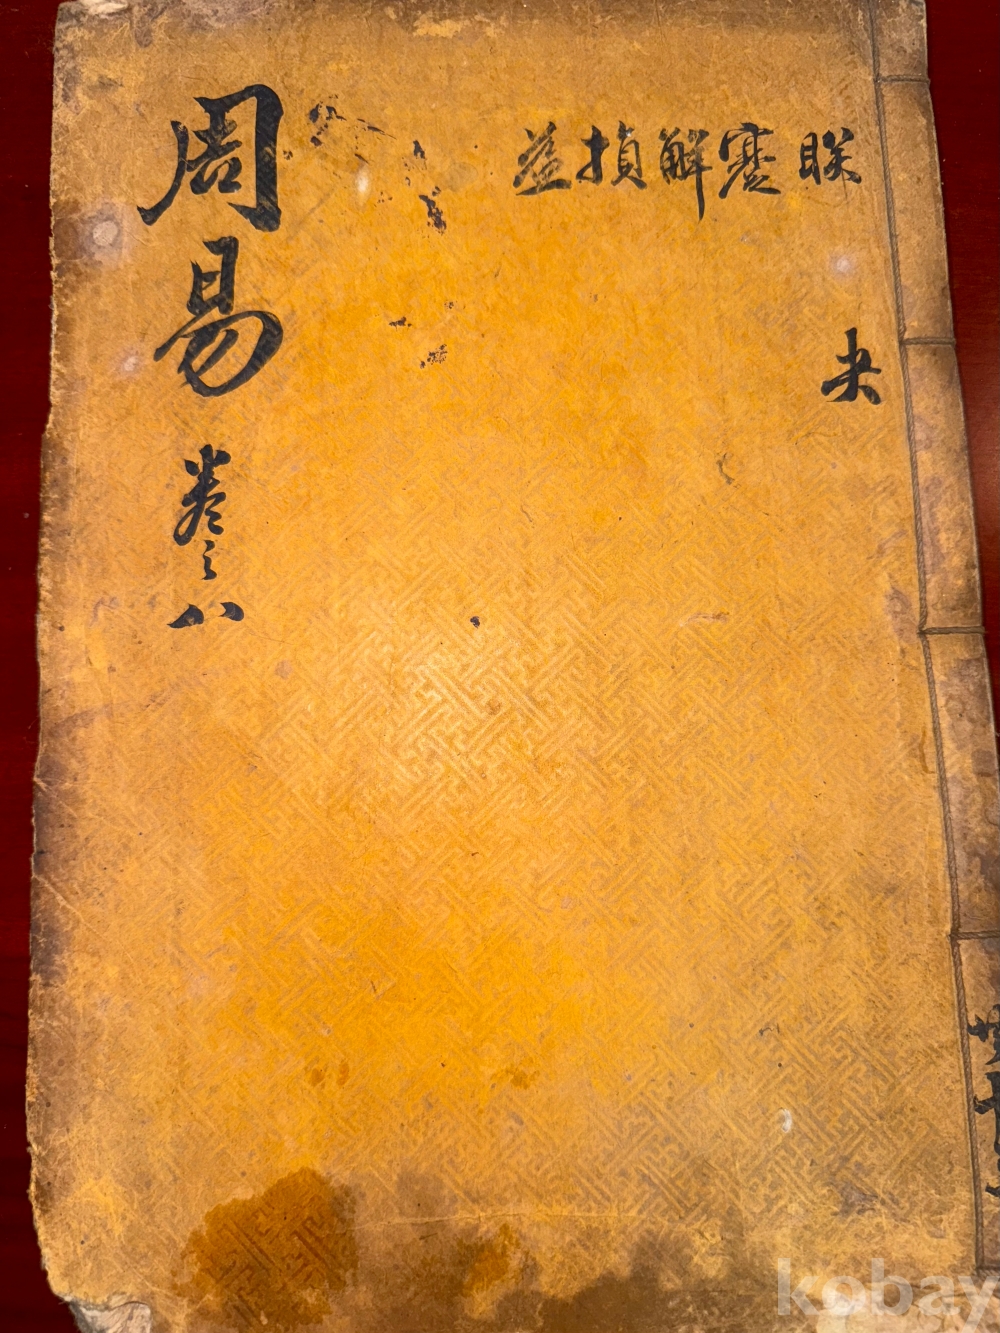 睽蹇解損益
夬
周易卷之八
kobay